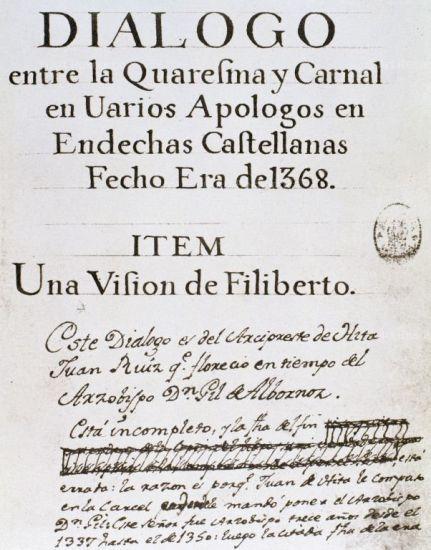 DIALOGO
entre la Quaresma y Carnal
en Uarios Apologos en
Endechas Castellanas
Fecho Era de 1368.
ITEM
Una Vision de Filiberto.
Este Dialogo es del Arcipreste de Hita
Juan Ruiz qe. florecio en tiempo del
Arzobispo Dn. Gil de Albornoz.
Está incompleto, y la fha del fin
está
errata: la razon es porqe. Juan de Hita le compuso
en la Carcel mandó poner el Arzobispo
Dn. Gil: Este Señor fue Arzobispo trece años desde el
1337 hasta el de 1350: luego la citada fha de la era